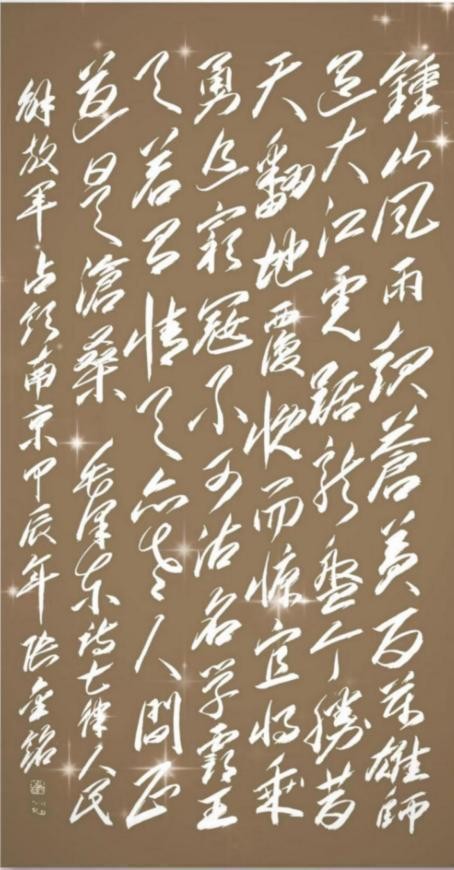 鍾山風雨起蒼黃百萬雄師
過大江虎踞龍盤今勝昔
天翻地覆慨而慷宜將乘
勇追窮寇不可沽名学霸王
天若有情天亦老人間正
道是滄桑 毛澤东詩七律人民
解放军占领南京甲辰年 金銘